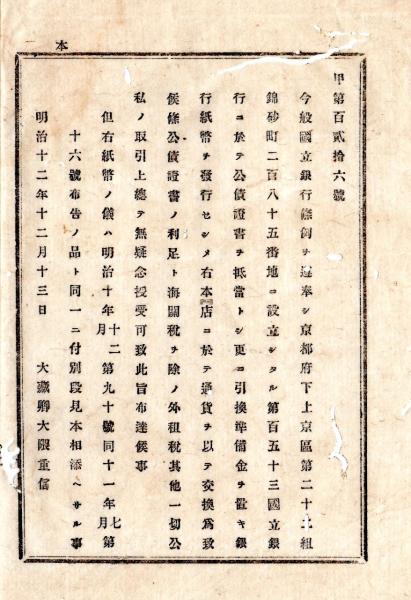 本
甲第百貳拾六號
今般國立銀行條例ヲ遵奉シ京都府下上京區第二十七組
錦砂町二百八十五番地ニ設立シタル第百五十三國立銀
行ニ於テ公債證書ヲ抵當トシ更ニ引換準備金ヲ置キ銀
行紙幣ヲ發行セシメ右本店ニ於テ通貨ヲ以テ交換爲致
候條公債證書ノ利足ト海關稅ヲ除ノ外租稅其他一切公
私ノ取引上總テ無疑念授受可致此旨布達候事
但右紙幣ノ儀ハ明治十年十二月第九十號同十一年七月第
十六號布告ノ品ト同一ニ付別段見本相添ヘサル事
明治十二年十二月十三日 大藏卿大隈重信